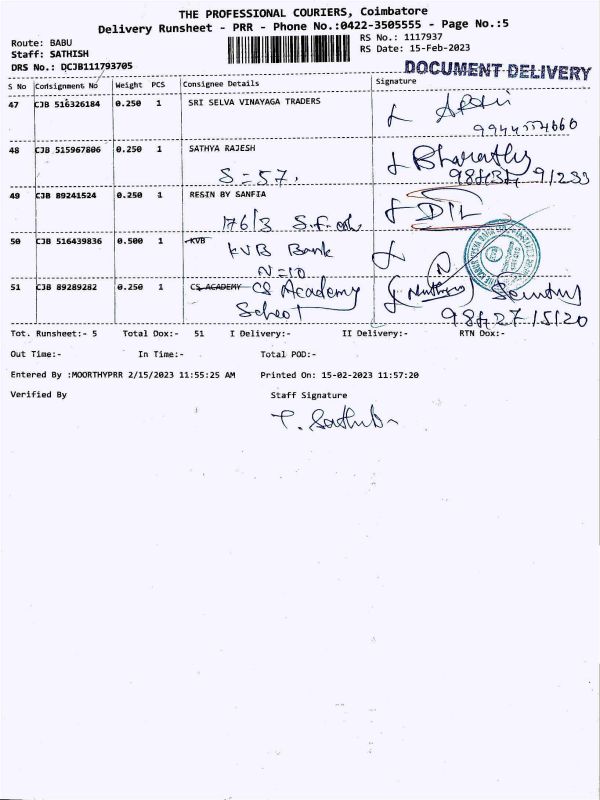 THE PROFESSIONAL COURIERS, Coimbatore
Delivery Runsheet - PRR - Phone No.:0422-3505555 - Page No.:5
Route: BABU
Staff: SATHISH
DRS No.: DCJB111793705
RS No.: 1117937
RS Date: 15-Feb-2023
DOCUMENT DELIVERY
S No Consignment No Weight PCS Consignee Details Signature
47 CJB 516326184 0.250 1 SRI SELVA VINAYAGA TRADERS
48 CJB 515967806 0.250 1 SATHYA RAJESH Bharathy
S=57,
49 CJB 89241524 0.250 1 RESIN BY SANFIA
176/3
50 CJB 516439836 0.500 1 KVB
KVB Bank
N=10
51 CJB 89289282 0.250 1 CS ACADEMY CS Academy
School
Tot. Runsheet:- 5 Total Dox:- 51 I Delivery:- II Delivery:- RTN Dox:-
Out Time:- In Time:- Total POD:-
Entered By :MOORTHYPRR 2/15/2023 11:55:25 AM Printed On: 15-02-2023 11:57:20
Verified By Staff Signature